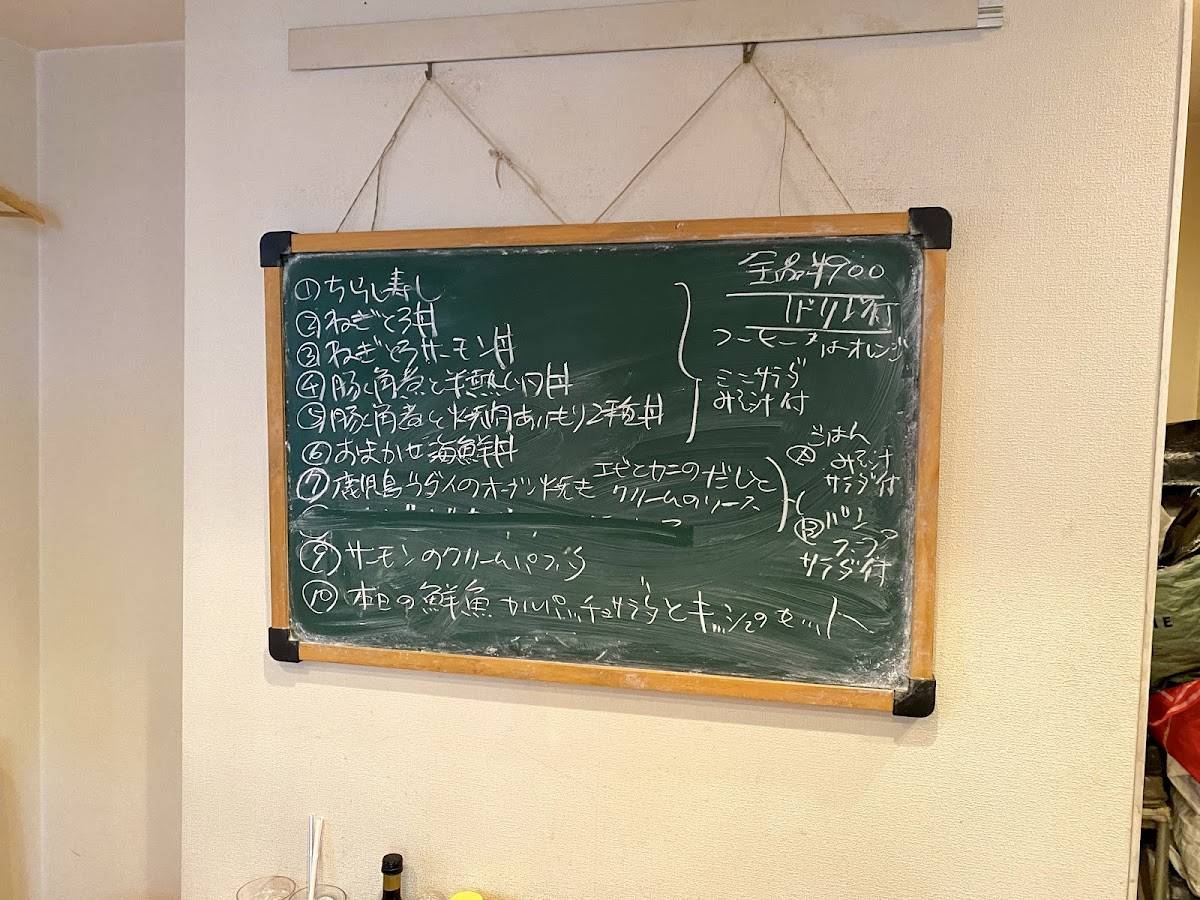 ①ちらし寿し
②ねぎとろ丼
③ねぎとろサーモン丼
④豚く角煮と半熟く月丼
⑤豚く角煮と焼肉あいもり2種丼
⑥おまかせ海鮮丼
⑦鹿児島ダイのオーブン焼き エビとカニのだしと
クリームのソース
⑨サーモンのクリームパスタ
⑩本日の鮮魚カルパッチョサラダとキッシュのセット
全品¥900
1ドリンク付
コーヒー はオレンジ
ミニサラダ
みそ汁付
Ⓐごはん
みそ汁
サラダ付
Ⓑパン
スープ
サラダ付